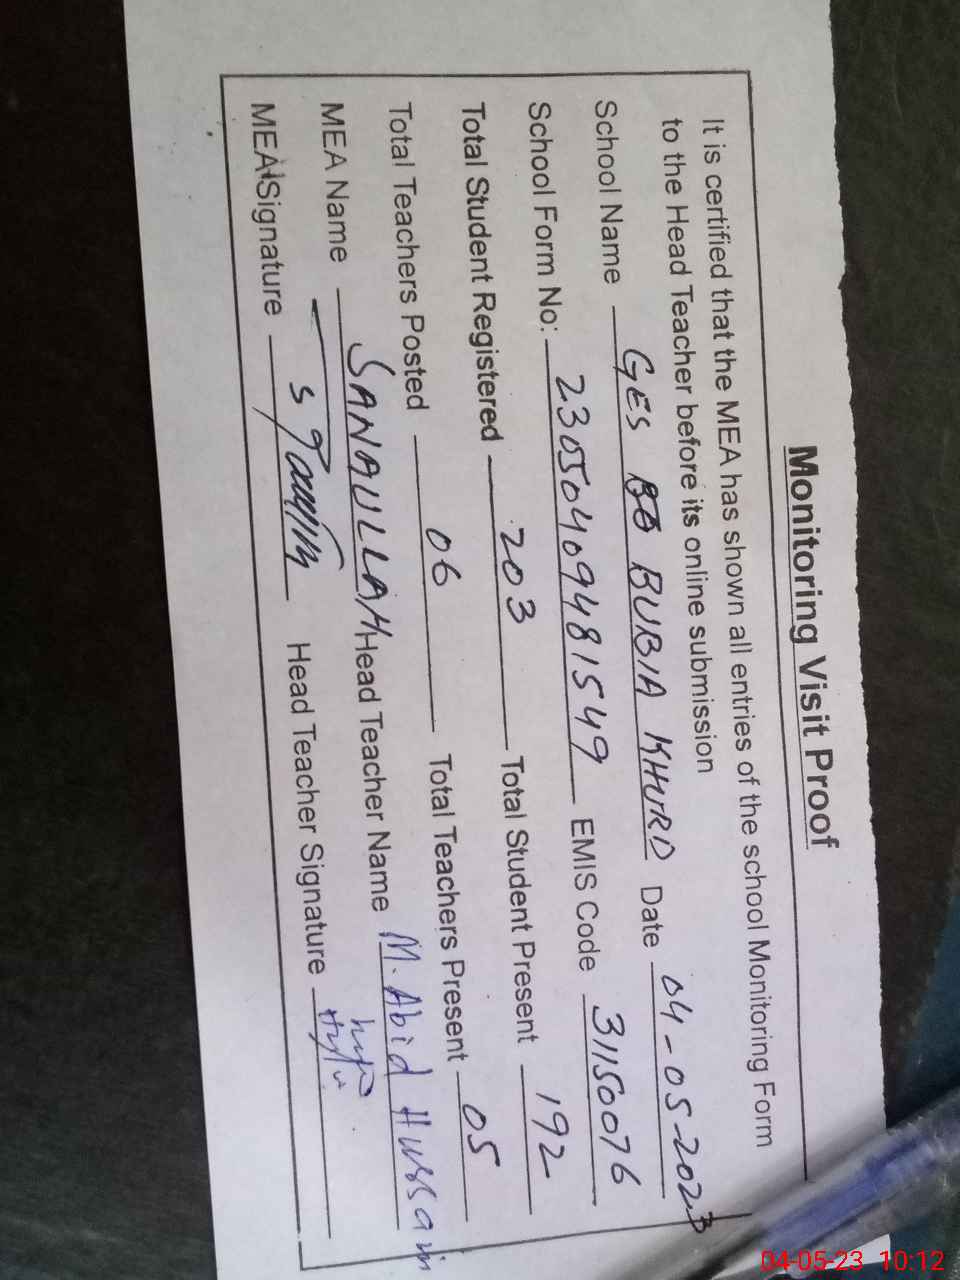 Monitoring Visit Proof
It is certified that the MEA has shown all entries of the school Monitoring Form
to the Head Teacher before its online submission
School Name GES BUBIA KHURD Date 04-05-2023
School Form No: 23050409481549 EMIS Code 31150076
Total Student Registered 203 Total Student Present 192
Total Teachers Posted 06 Total Teachers Present 05
MEA Name SANAULLAH Head Teacher Name M. Abid Hussain
MEA Signature Head Teacher Signature
04-05-23 10:12